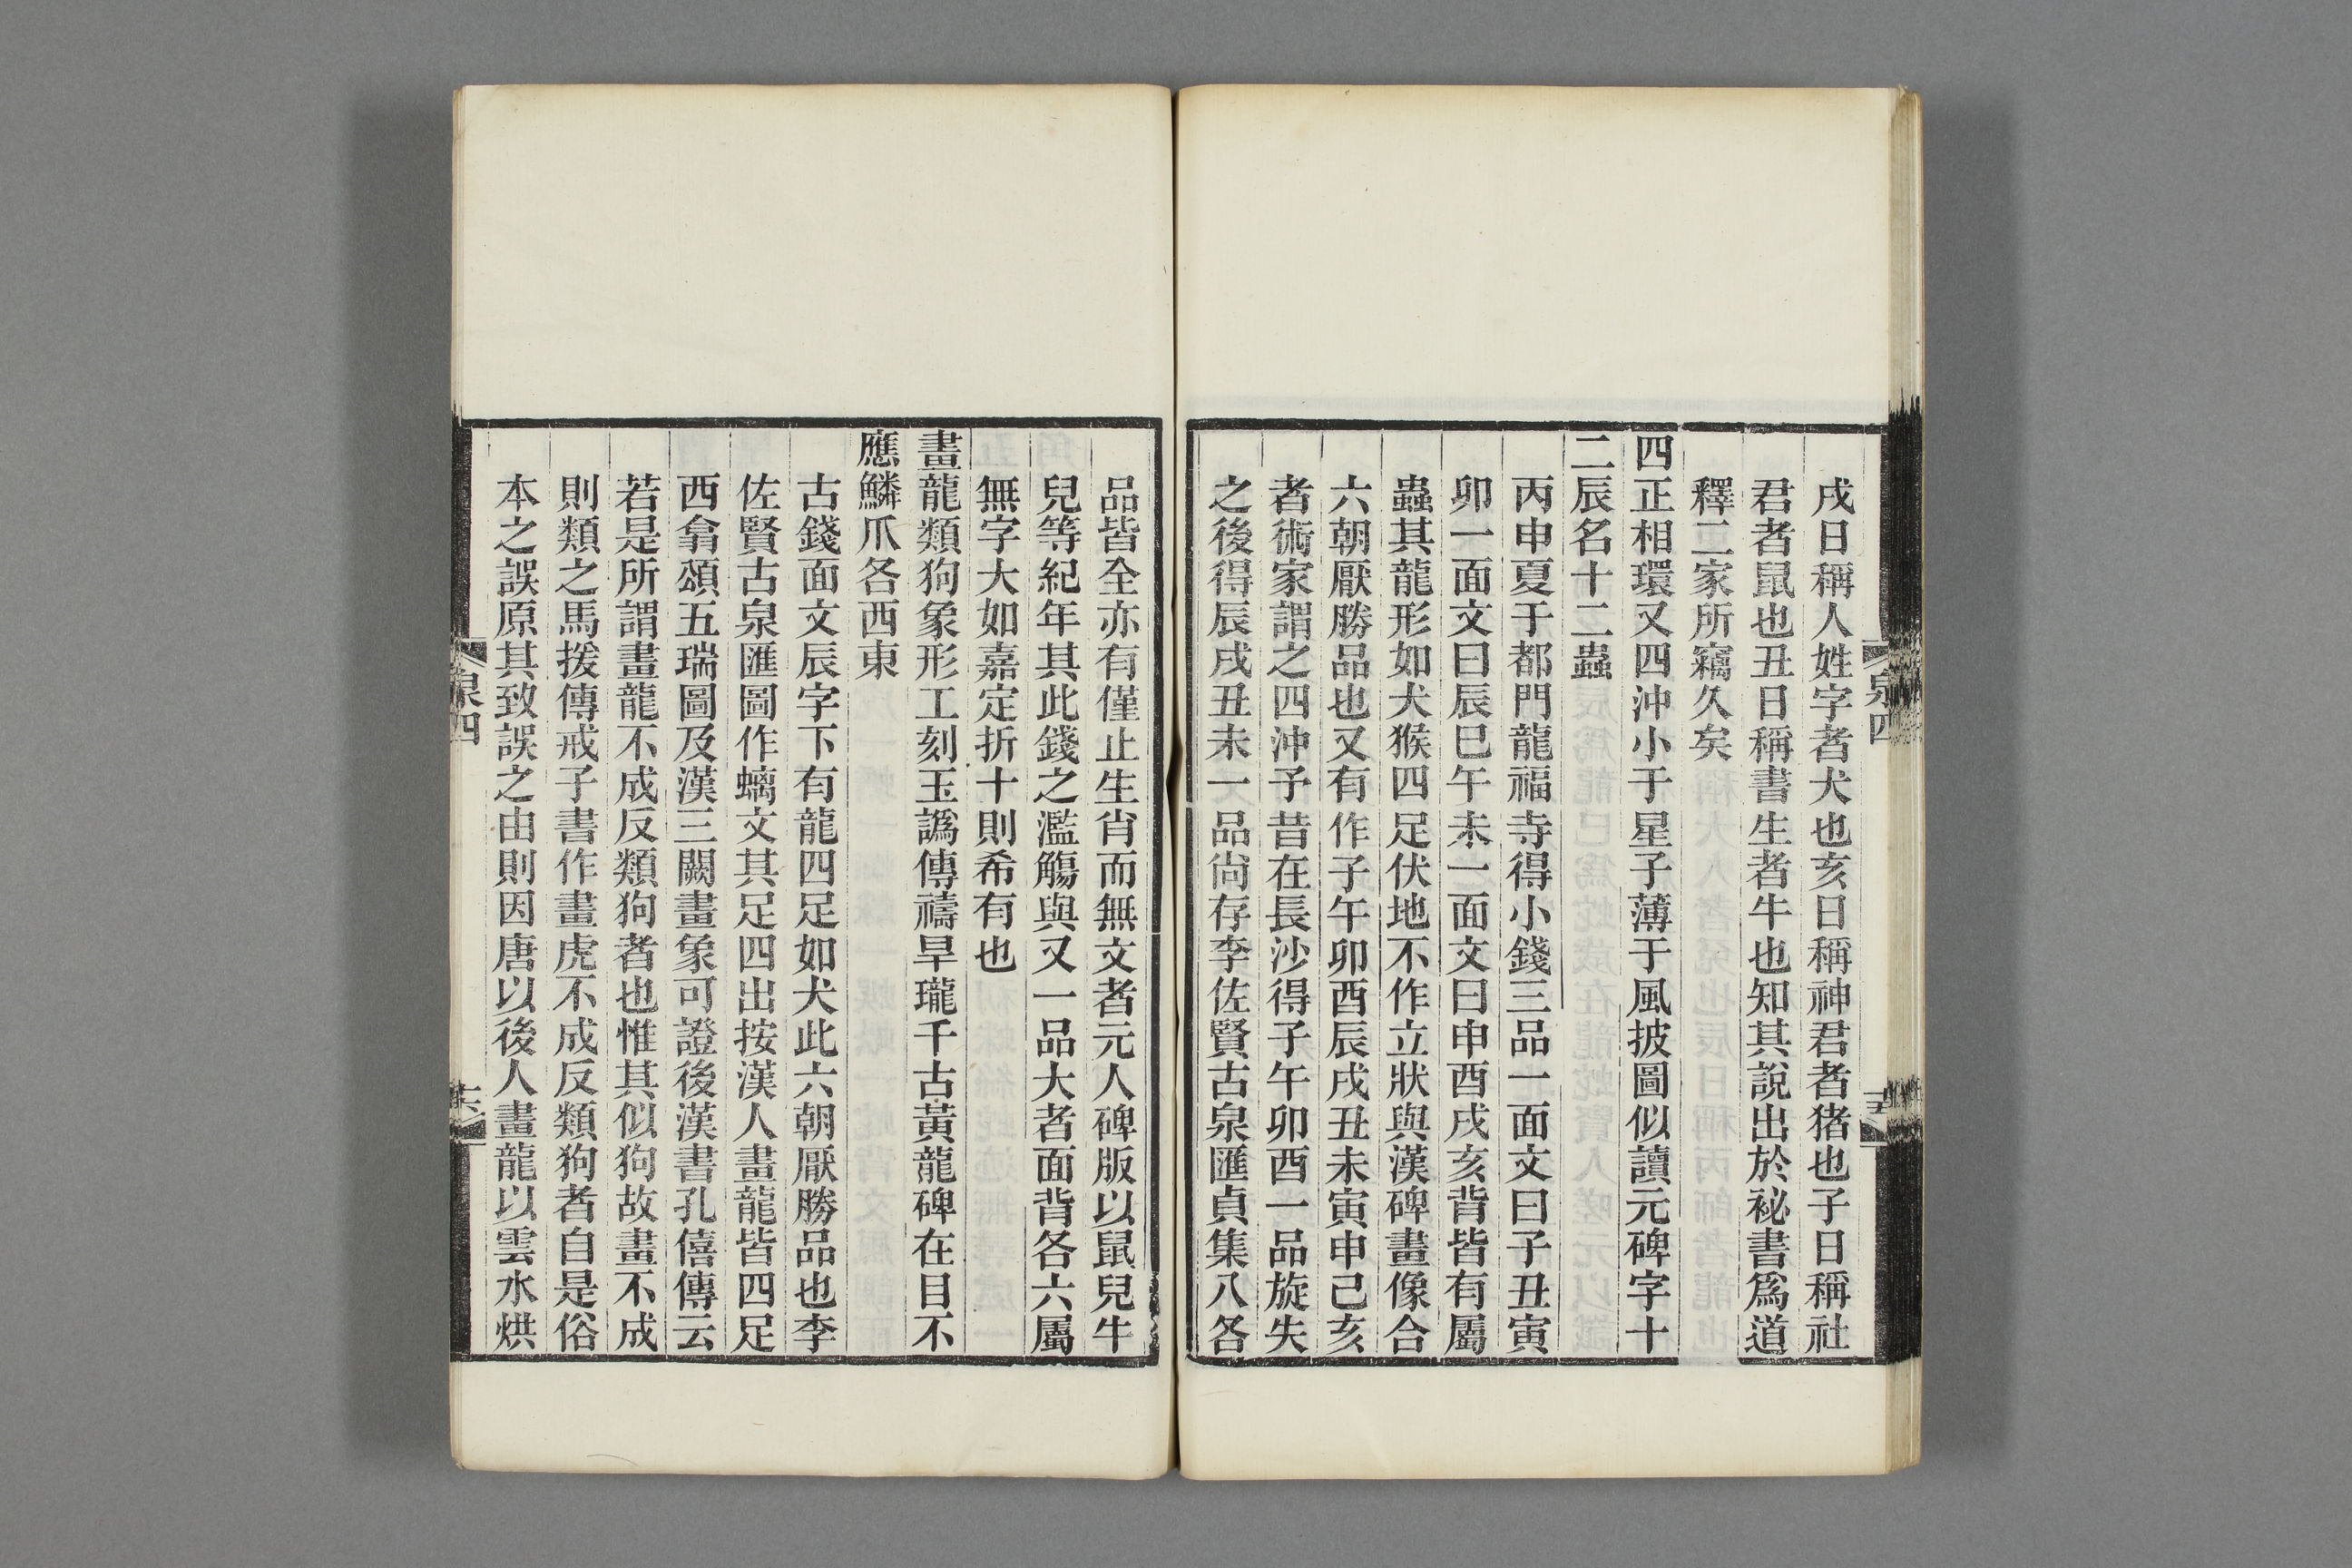 戌日稱人姓字者犬也亥日稱神君者猪也子日稱社
君者鼠也丑日稱書生者牛也知其說出於祕書爲道
釋二家所竊久矣
四正相環又四沖小于星子薄于風披圖似讀元碑字十
二辰名十二蟲
丙申夏于都門龍福寺得小錢三品一面文曰子丑寅
卯一面文曰辰巳午未一面文曰申酉戌亥背皆有屬
蟲其龍形如犬猴四足伏地不作立狀與漢碑畫像合
六朝厭勝品也又有作子午卯酉辰戌丑未寅申己亥
者術家謂之四沖予昔在長沙得子午卯酉一品旋失
之後得辰戌丑未一品尙存李佐賢古泉匯貞集八各
泉四
品皆全亦有僅止生肖而無文者元人碑版以鼠兒牛
兒等紀年其此錢之濫觴與又一品大者面背各六屬
無字大如嘉定折十則希有也
畫龍類狗象形工刻玉譌傳禱旱瓏千古黃龍碑在目不
應鱗爪各西東
古錢面文辰字下有龍四足如犬此六朝厭勝品也李
佐賢古泉匯圖作螭文其足四出按漢人畫龍皆四足
西𠓗頌五瑞圖及漢三闕畫象可證後漢書孔僖傳云
若是所謂畫龍不成反類狗者也惟其似狗故畫不成
則類之馬援傳戒子書作畫虎不成反類狗者自是俗
本之誤原其致誤之由則因唐以後人畫龍以雲水烘
泉四